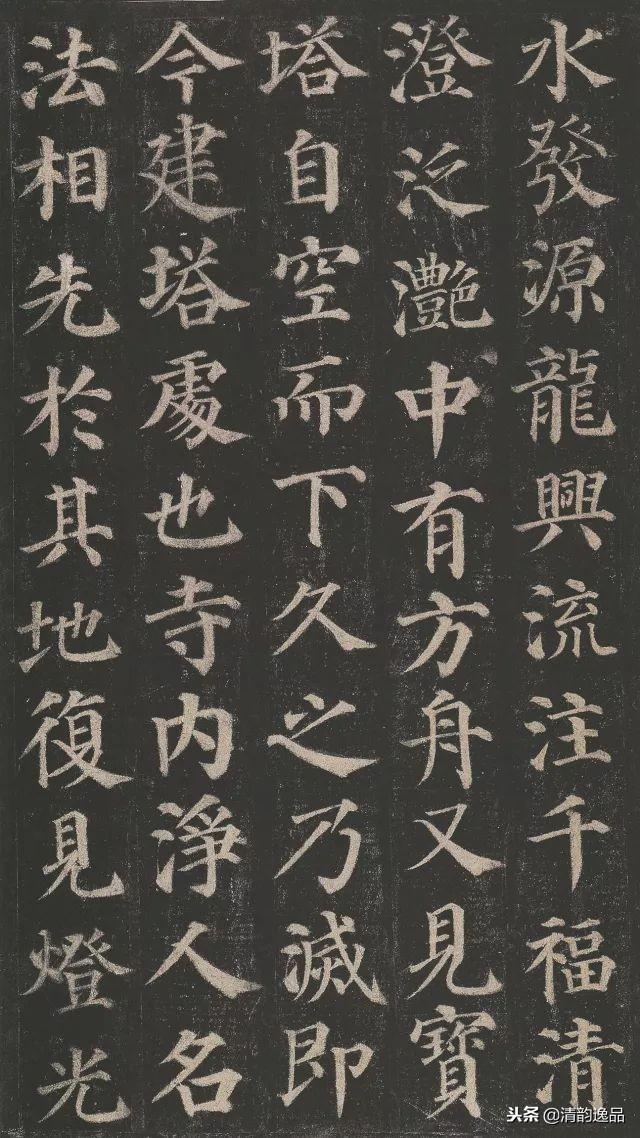 水發源龍興流注千福清
澄泛灔中有方舟又見寶
塔自空而下久之乃滅即
今建塔處也寺内淨人名
法相先於其地復見燈光
头条@清韵逸品